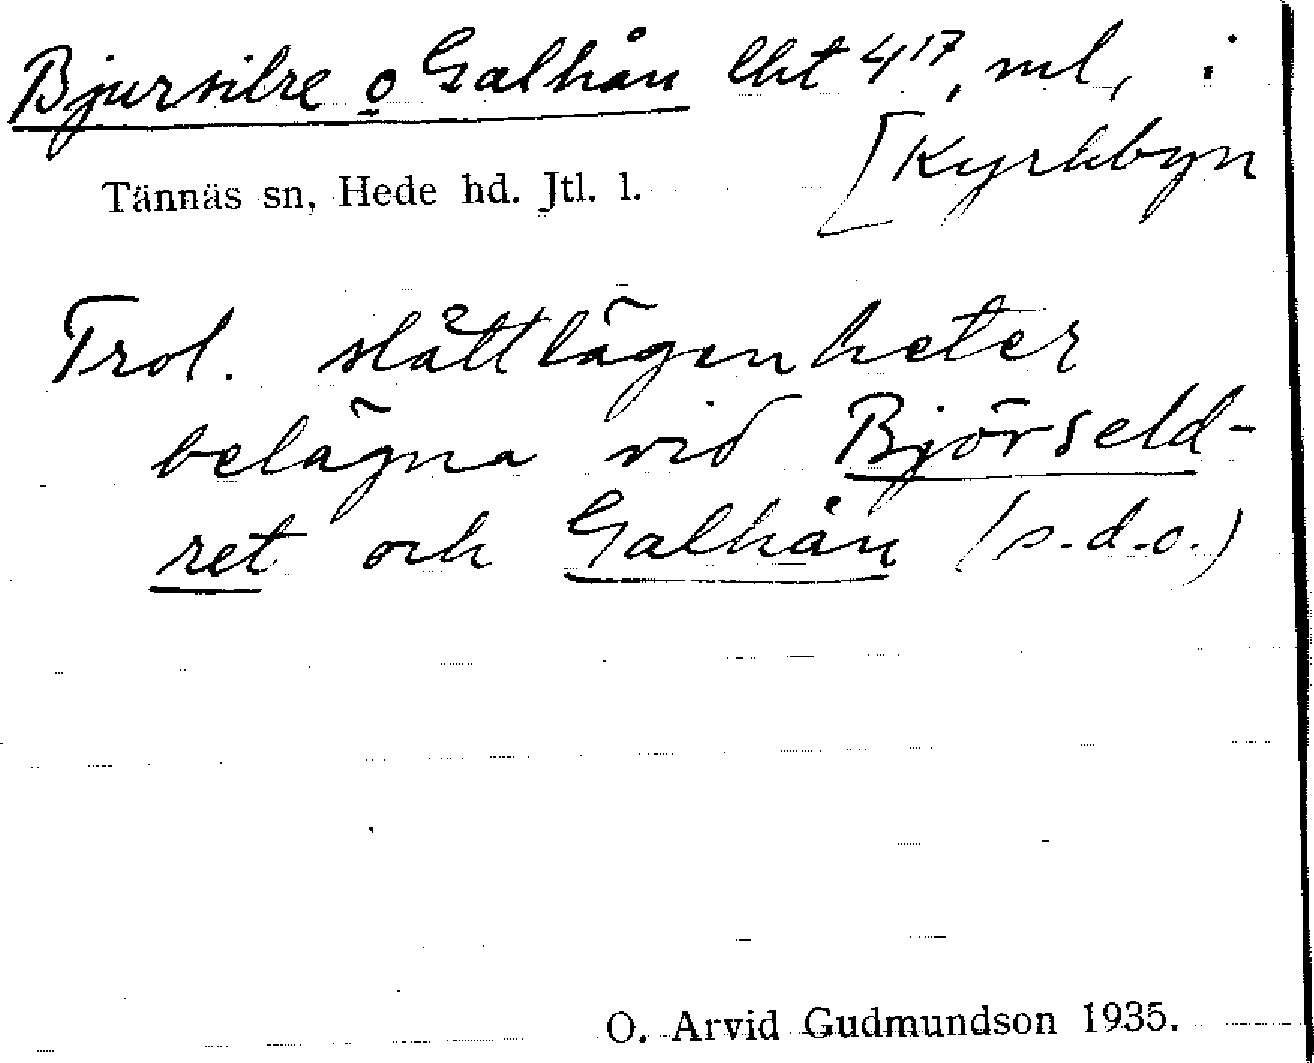 Bjursilre o Galhån lht 4¹⁷, ml, i
[Kyrkbyn
Tännäs sn, Hede hd. Jtl. l.
Trol. slåttlägenheter
belägna vid Björseld-
ret och Galhån (s.d.o.)
O. Arvid Gudmundson 1935.